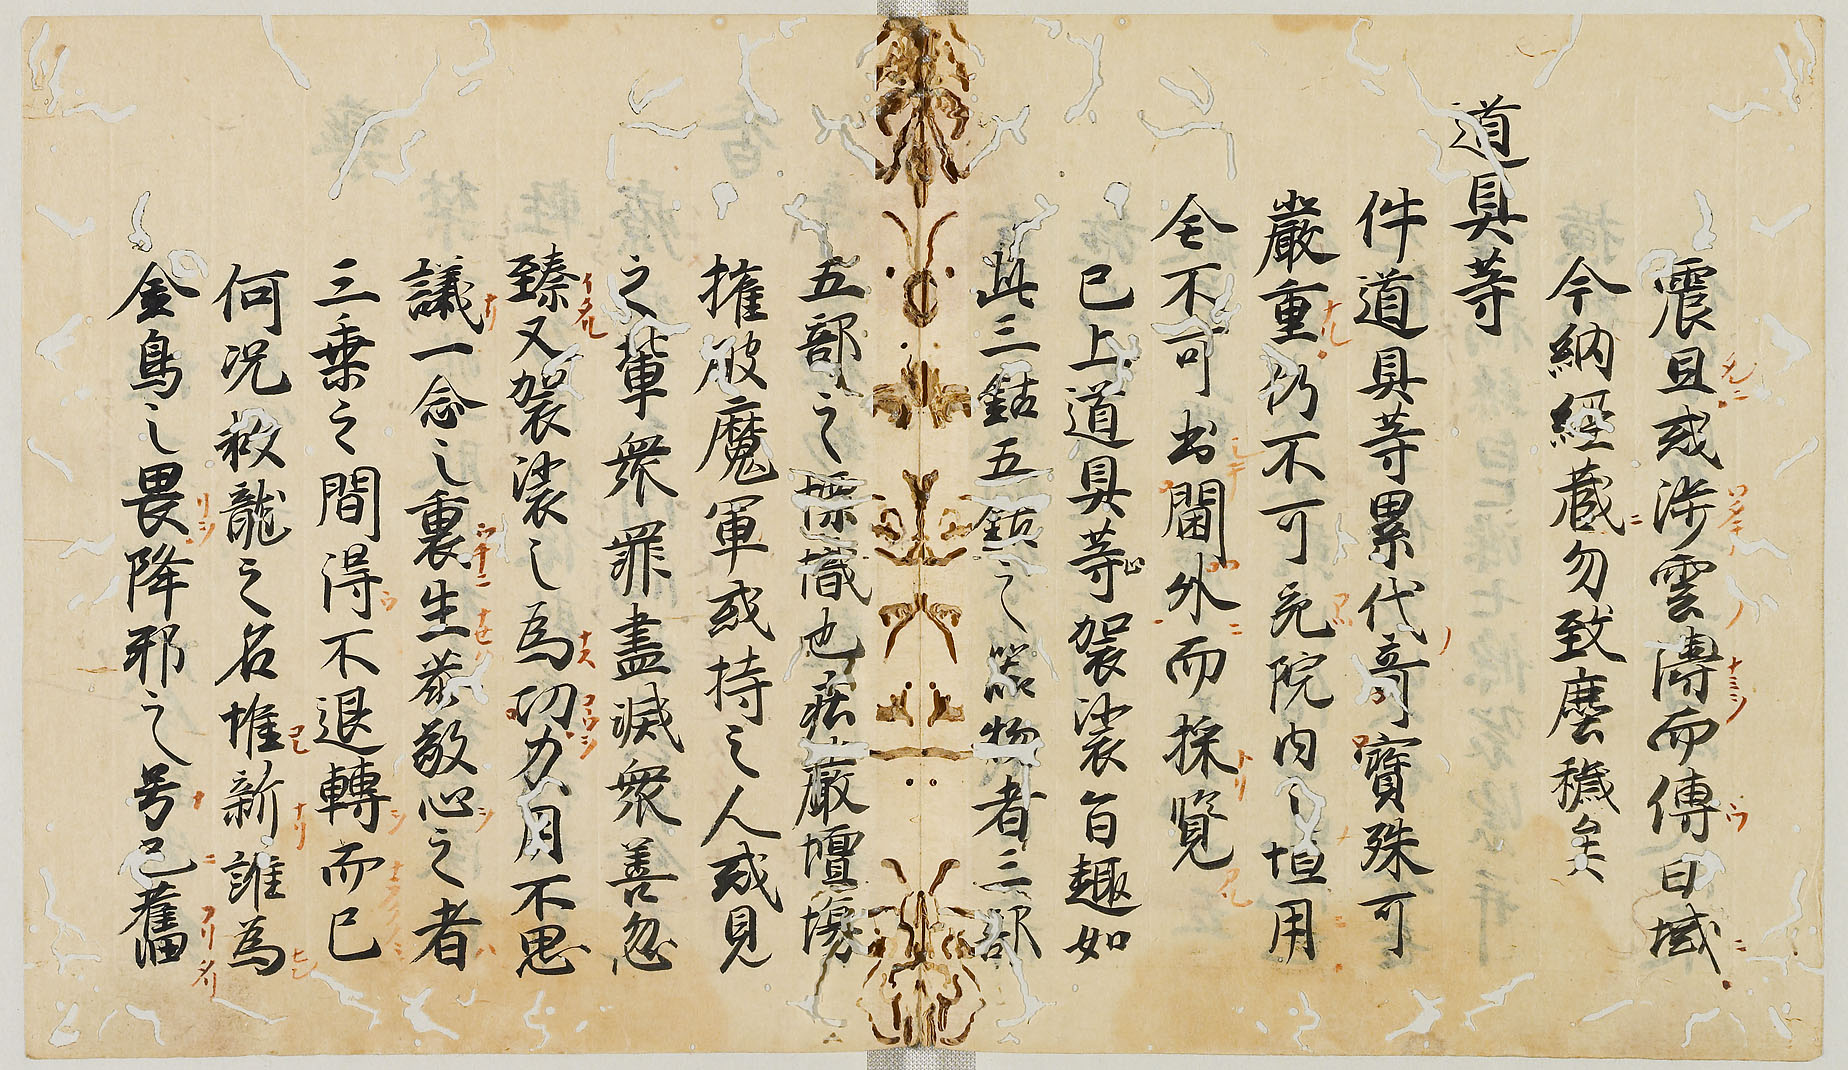 震旦或渉雲濤而傳日域
今納經蔵勿致塵穢矣
道具等
件道具等累代奇寶殊可
嚴重仍不可免院内之垣用
全不可出閫外而採覽
已上道具等加袈裟旨趣如
此三鈷五鈷之器物者三部
五部之㯹幟也莊嚴壇塲
摧破魔軍或持之人或見
之輩衆罪盡滅衆善忽
臻又袈裟之為功力用不思
議一念之裏生恭敬心之者
三乗之間得不退轉而已
何况救龍之名惟新誰為
金鳥之畏降邪之号已舊